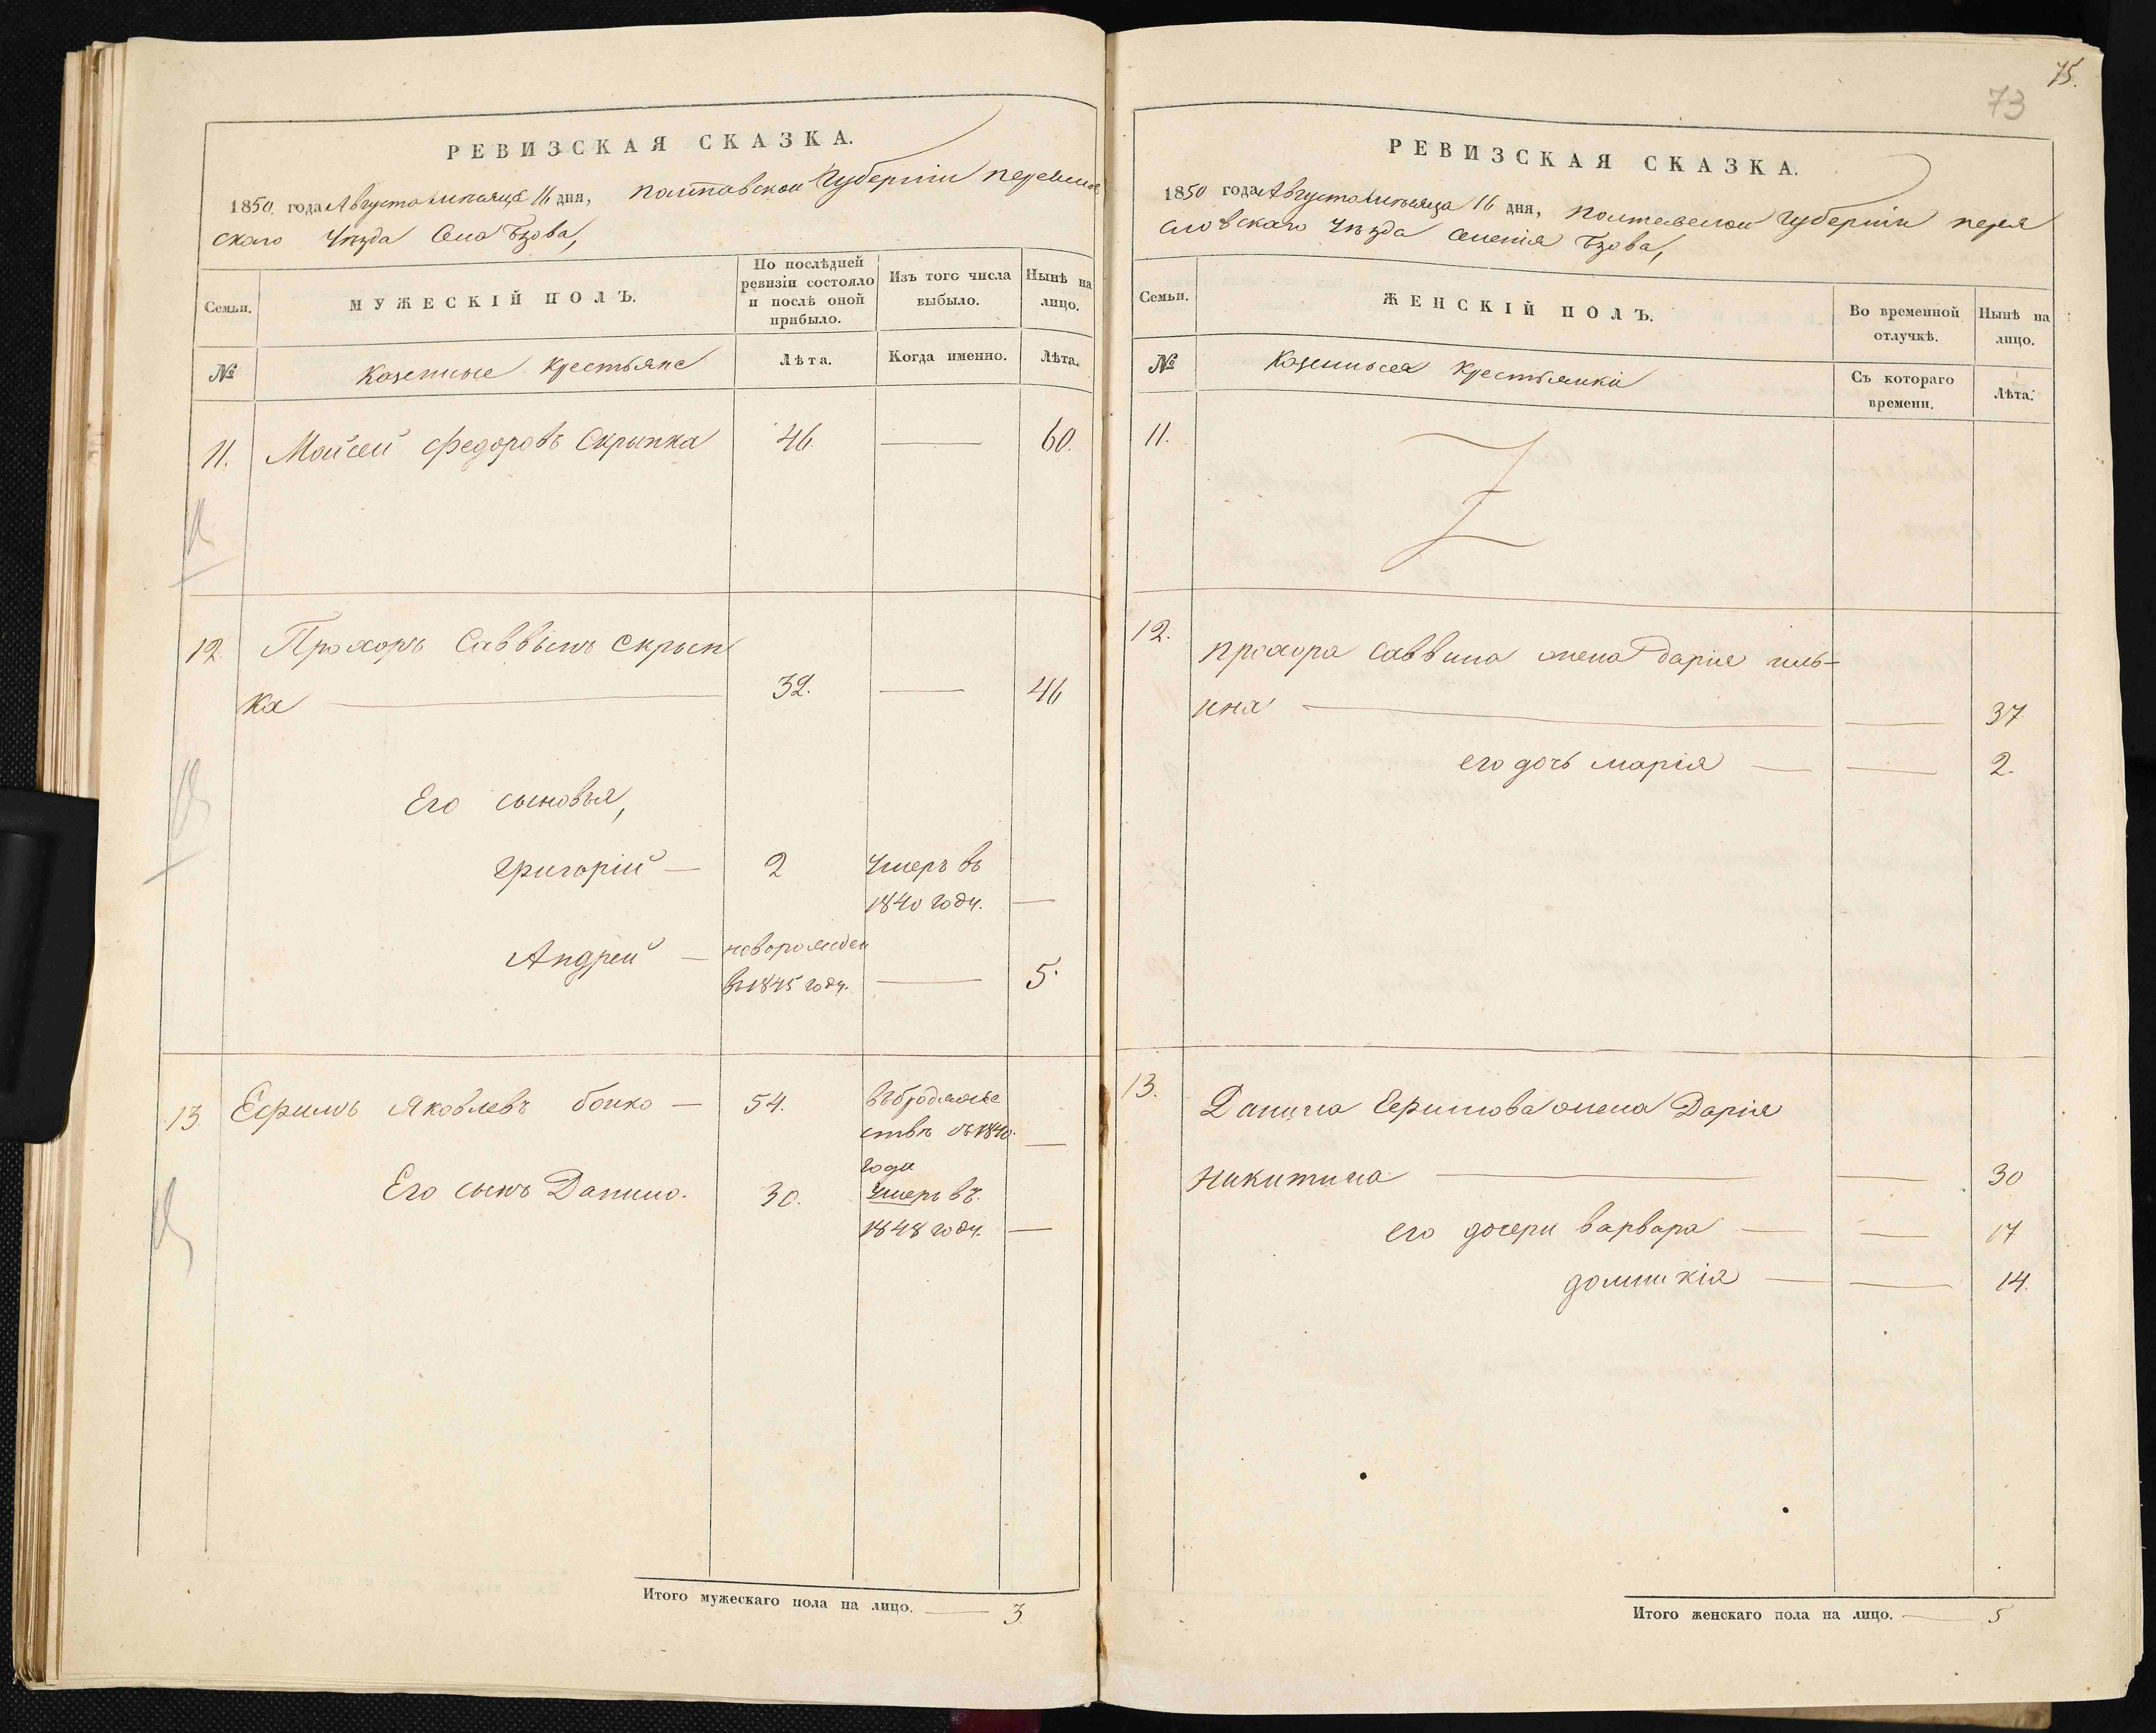 РЕВИЗСКАЯ СКАЗКА.
1850 года Августа мѣсяца 16 дня, полтавской Губерніи переяслов
скаго Уѣзда Села Бзова,
Семьи.
МУЖЕСКІЙ ПОЛЪ.
По послѣдней
ревизіи состояло
и послѣ оной
прибыло.
Изъ того числа
выбыло.
Нынѣ на
лицо.
№
Казенные Крестьяне
Лѣта.
Когда именно.
Лѣта.
11. Мойсей Федоровъ Скрыпка 46. — 60.
12. Прохоръ Саввинъ Скрып
ка — 32. — 46
Его сыновья,
Григорій — 2 Умеръ въ
1840 году. —
Андрей — новорожден
въ 1845 году. — 5.
13 Ефимъ Яковлевъ бойко — 54. въ бродяже
ствѣ съ 1840. —
года
Его сынъ Данило. 30. Умеръ въ.
1848 году. —
Итого мужескаго пола на лицо. — 3.
75.
73
РЕВИЗСКАЯ СКАЗКА.
1850 года Августа мѣсяца 16 дня, полтавской Губерніи перея
словскаго Уѣзда селенія Бзова,
Семьи.
ЖЕНСКІЙ ПОЛЪ.
Во временной
отлучкѣ.
Нынѣ на
лицо.
№
Казенныя Крестьянки
Съ котораго
времени.
Лѣта.
11.
12.
прохора Саввина жена Дарія иль-
ина — — 37
его дочь марія — — 2.
13.
Данила Ефимова жена Дарія
Никитина — — 30
его дочери варвара — — 17
домникія — — 14.
Итого женскаго пола на лицо. — 5